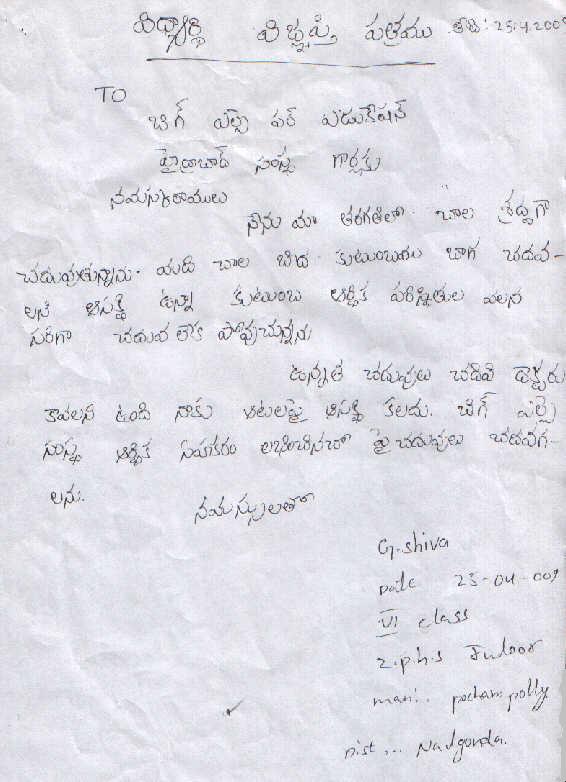 విద్యార్థి విజ్ఞప్తి పత్రము తేది: 25.4.2009
TO
బిగ్ హెల్ప్ ఫర్ ఎడుకేషన్
హైద్రాబాద్ సంస్థ గార్లకు
నమస్కారాములు
నేను మా తరగతిలో చాల శ్రద్ధగా
చదువుతున్నాను. మాది చాల బీద కుటుంబం బాగ చదవ-
లని ఆసక్తి ఉన్నా కుటుంబ ఆర్థిక పరిస్థితుల వలన
సరిగా చదువ లేక పోవుచున్నను
ఉన్నత చదువులు చదివి డాక్టరు
కావలని ఉంది నాకు ఆటలపై ఆసక్తి కలదు. బిగ్ హెల్ప్
సంస్థ ఆర్థిక సహకరం లభించినచో పై చదువులు చదవగ-
లను.
నమస్సులతో
G. shiva
Date 25-04-009
VI class
Z.p.h.s Juloor
man:. pocham pally
Dist... Nalgonda.